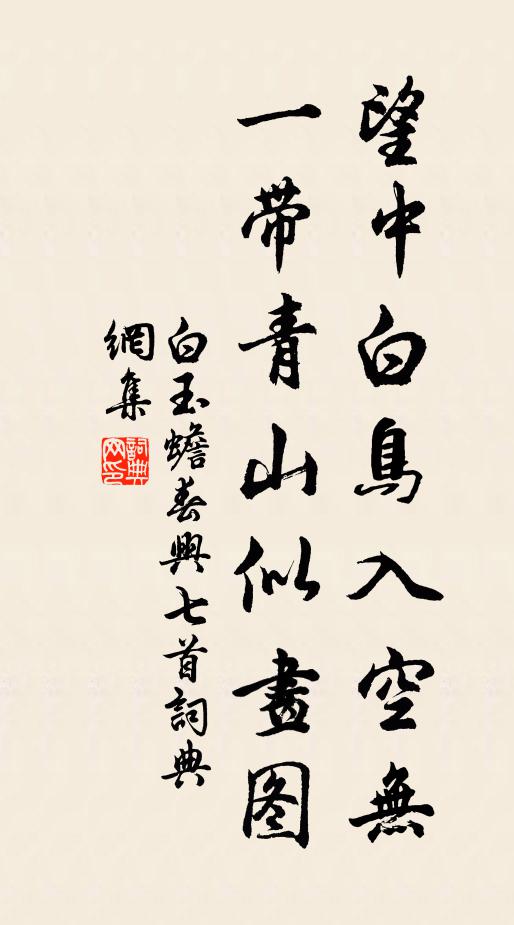 望中白鳥入空無
一帶青山似畫图
白玉蟾春興七首詞典
網集
詞典网印